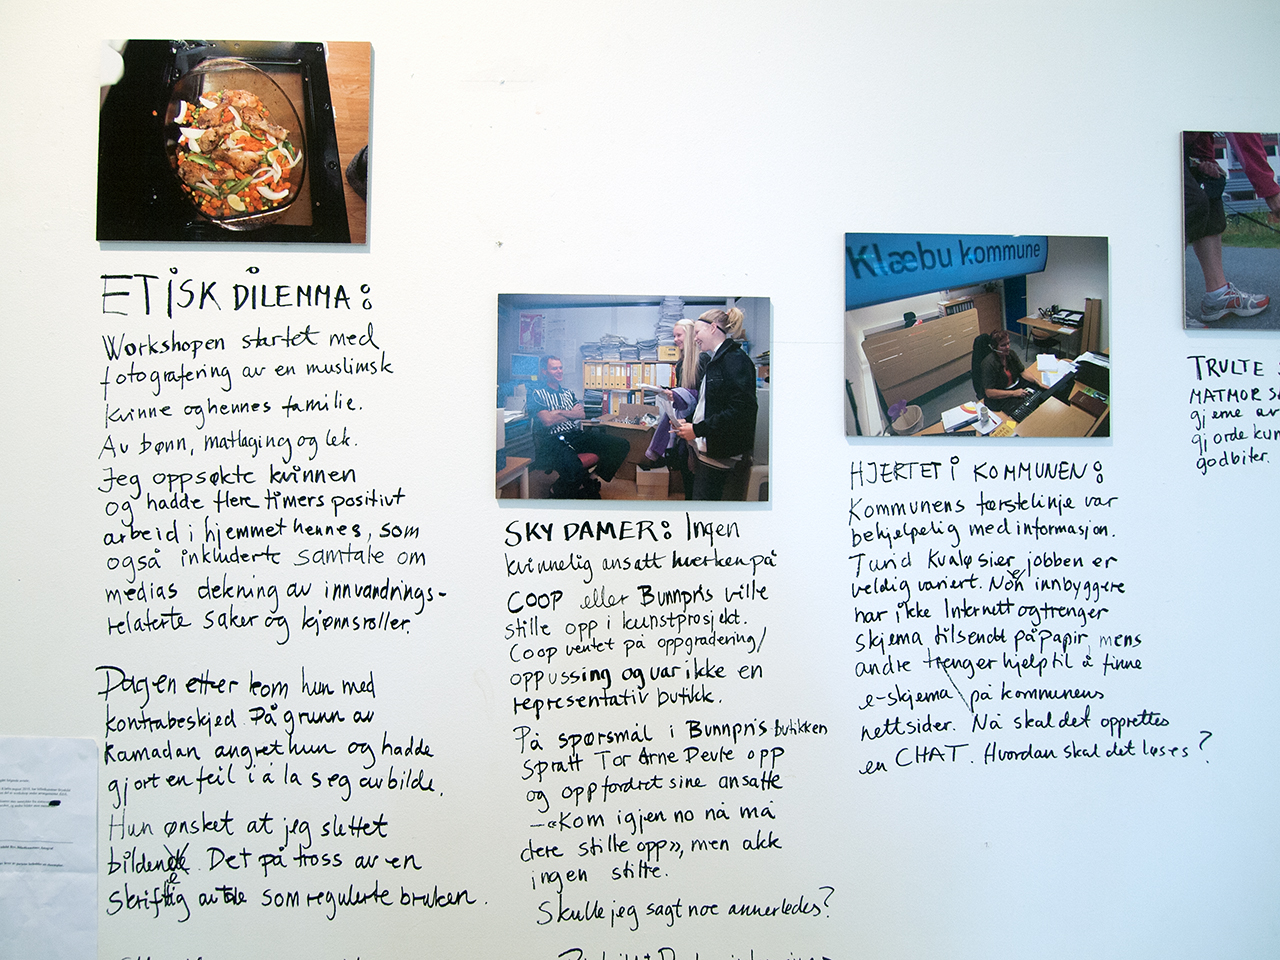 ETISK DILEMMA:
Workshopen startet med
fotografering av en muslimsk
kvinne og hennes familie.
Av bønn, matlaging og lek.
Jeg oppsøkte kvinnen
og hadde flere timers positivt
arbeid i hjemmet hennes, som
også inkluderte samtale om
medias dekning av innvandrings-
relaterte saker og kjønnsroller.
Dagen etter kom hun med
kontrabeskjed. På grunn av
Ramadan angret hun og hadde
gjort en feil i å la seg avbilde.
Hun ønsket at jeg slettet
bildene. Det på tross av en
skriftlig avtale som regulerte bruken.
SKY DAMER: Ingen
kvinnelig ansatt hverken på
COOP eller Bunnpris ville
stille opp i kunstprosjekt.
Coop ventet på oppgradering/
oppussing og var ikke en
representativ butikk.
På spørsmål i Bunnpris butikken
spratt Tor Arne Devte opp
og oppfordret sine ansatte
-«Kom igjen no nå må
dere stille opp», men akk
ingen stilte.
Skulle jeg sagt noe annerledes?
Klæbu kommune
HJERTET I KOMMUNEN:
Kommunens førstelinje var
behjelpelig med informasjon.
Turid Kvaløsier jobben er
veldig variert. Noen innbyggere
har ikke Internett og trenger
skjema tilsendt på papir, mens
andre trenger hjelp til å finne
e-skjema på kommunens
nettsider. Nå skal det opprettes
en CHAT. Hvordan skal det løses?
TRULTE
MATMOR
gjerne
gjorde
godbiter.